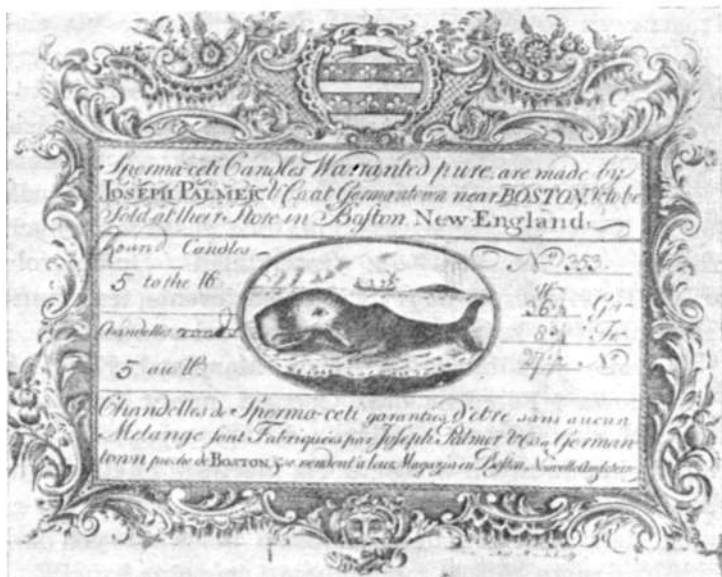 Sperma-ceti Candles Warranted pure, are made by
JOSEPH PALMER & Co. at Germantown near BOSTON, & to be
Sold at their Store in Boston New England.
Round Candles
5 to the lb
Chandelles rond
5 au lb
No. 353.
lb
36¼ Gr
8¾ Tr
27½ Nt
Chandelles de Sperma-ceti garanties d'etre sans aucun
Melange sont Fabriquées par Joseph Palmer & Co. a German
town proche de BOSTON, & se vendent a leur Magazin en Boston Nouvelle Angleterre